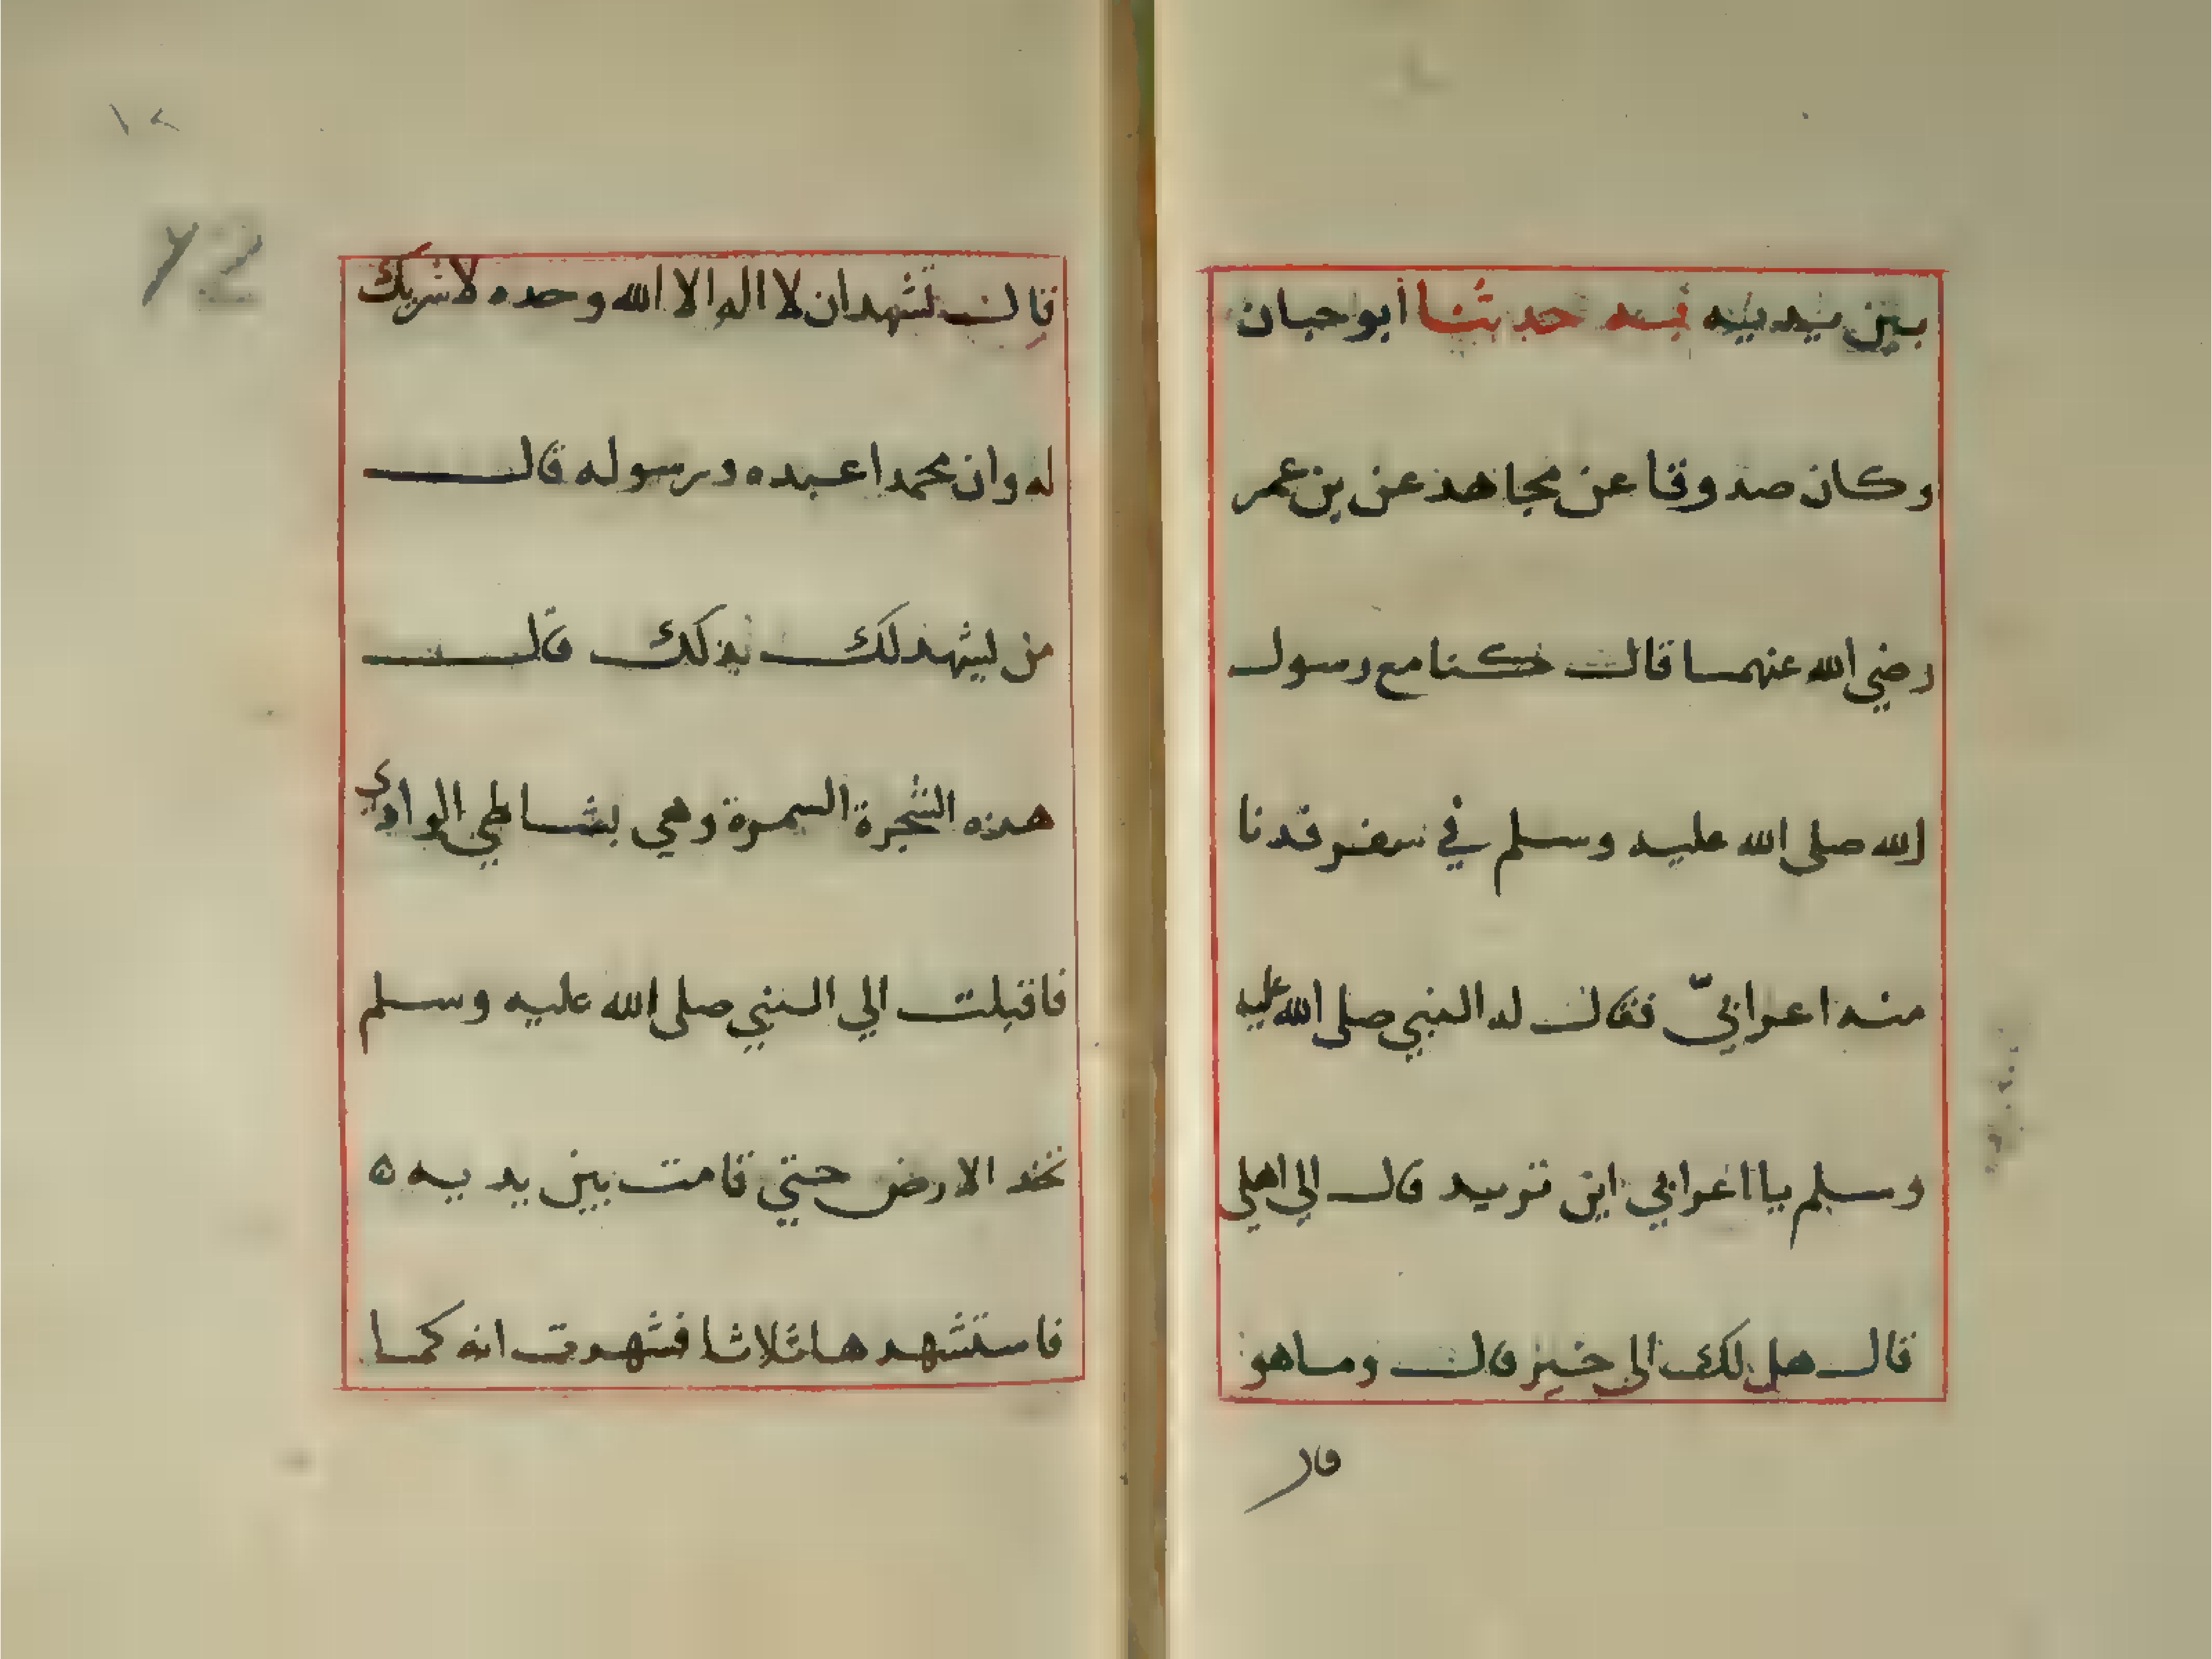 بين يديه حدثنا أبو حيان
وكان صدوقا عن مجاهد عن بن عمر
رضي الله عنهما قال كنا مع رسول
الله صلى الله عليه وسلم في سفر فدنا
منه اعرابيّ فقال له النبي صلى الله عليه
وسلم يا اعرابي اين تريد قال الي اهلي
قال هل لك الي خير قال وما هو
قال
قال تشهد ان لا اله الا الله وحده لا شريك
له وان محمدا عبده ورسوله قال
من يشهد لك بذلك قال
هذه الشجرة السمرة وهي بشاطي الوادي
فاقبلت الي النبي صلى الله عليه وسلم
تخد الارض حتي قامت بين يديه ه
فاستشهدها ثلاثا فشهدت انه كما
12